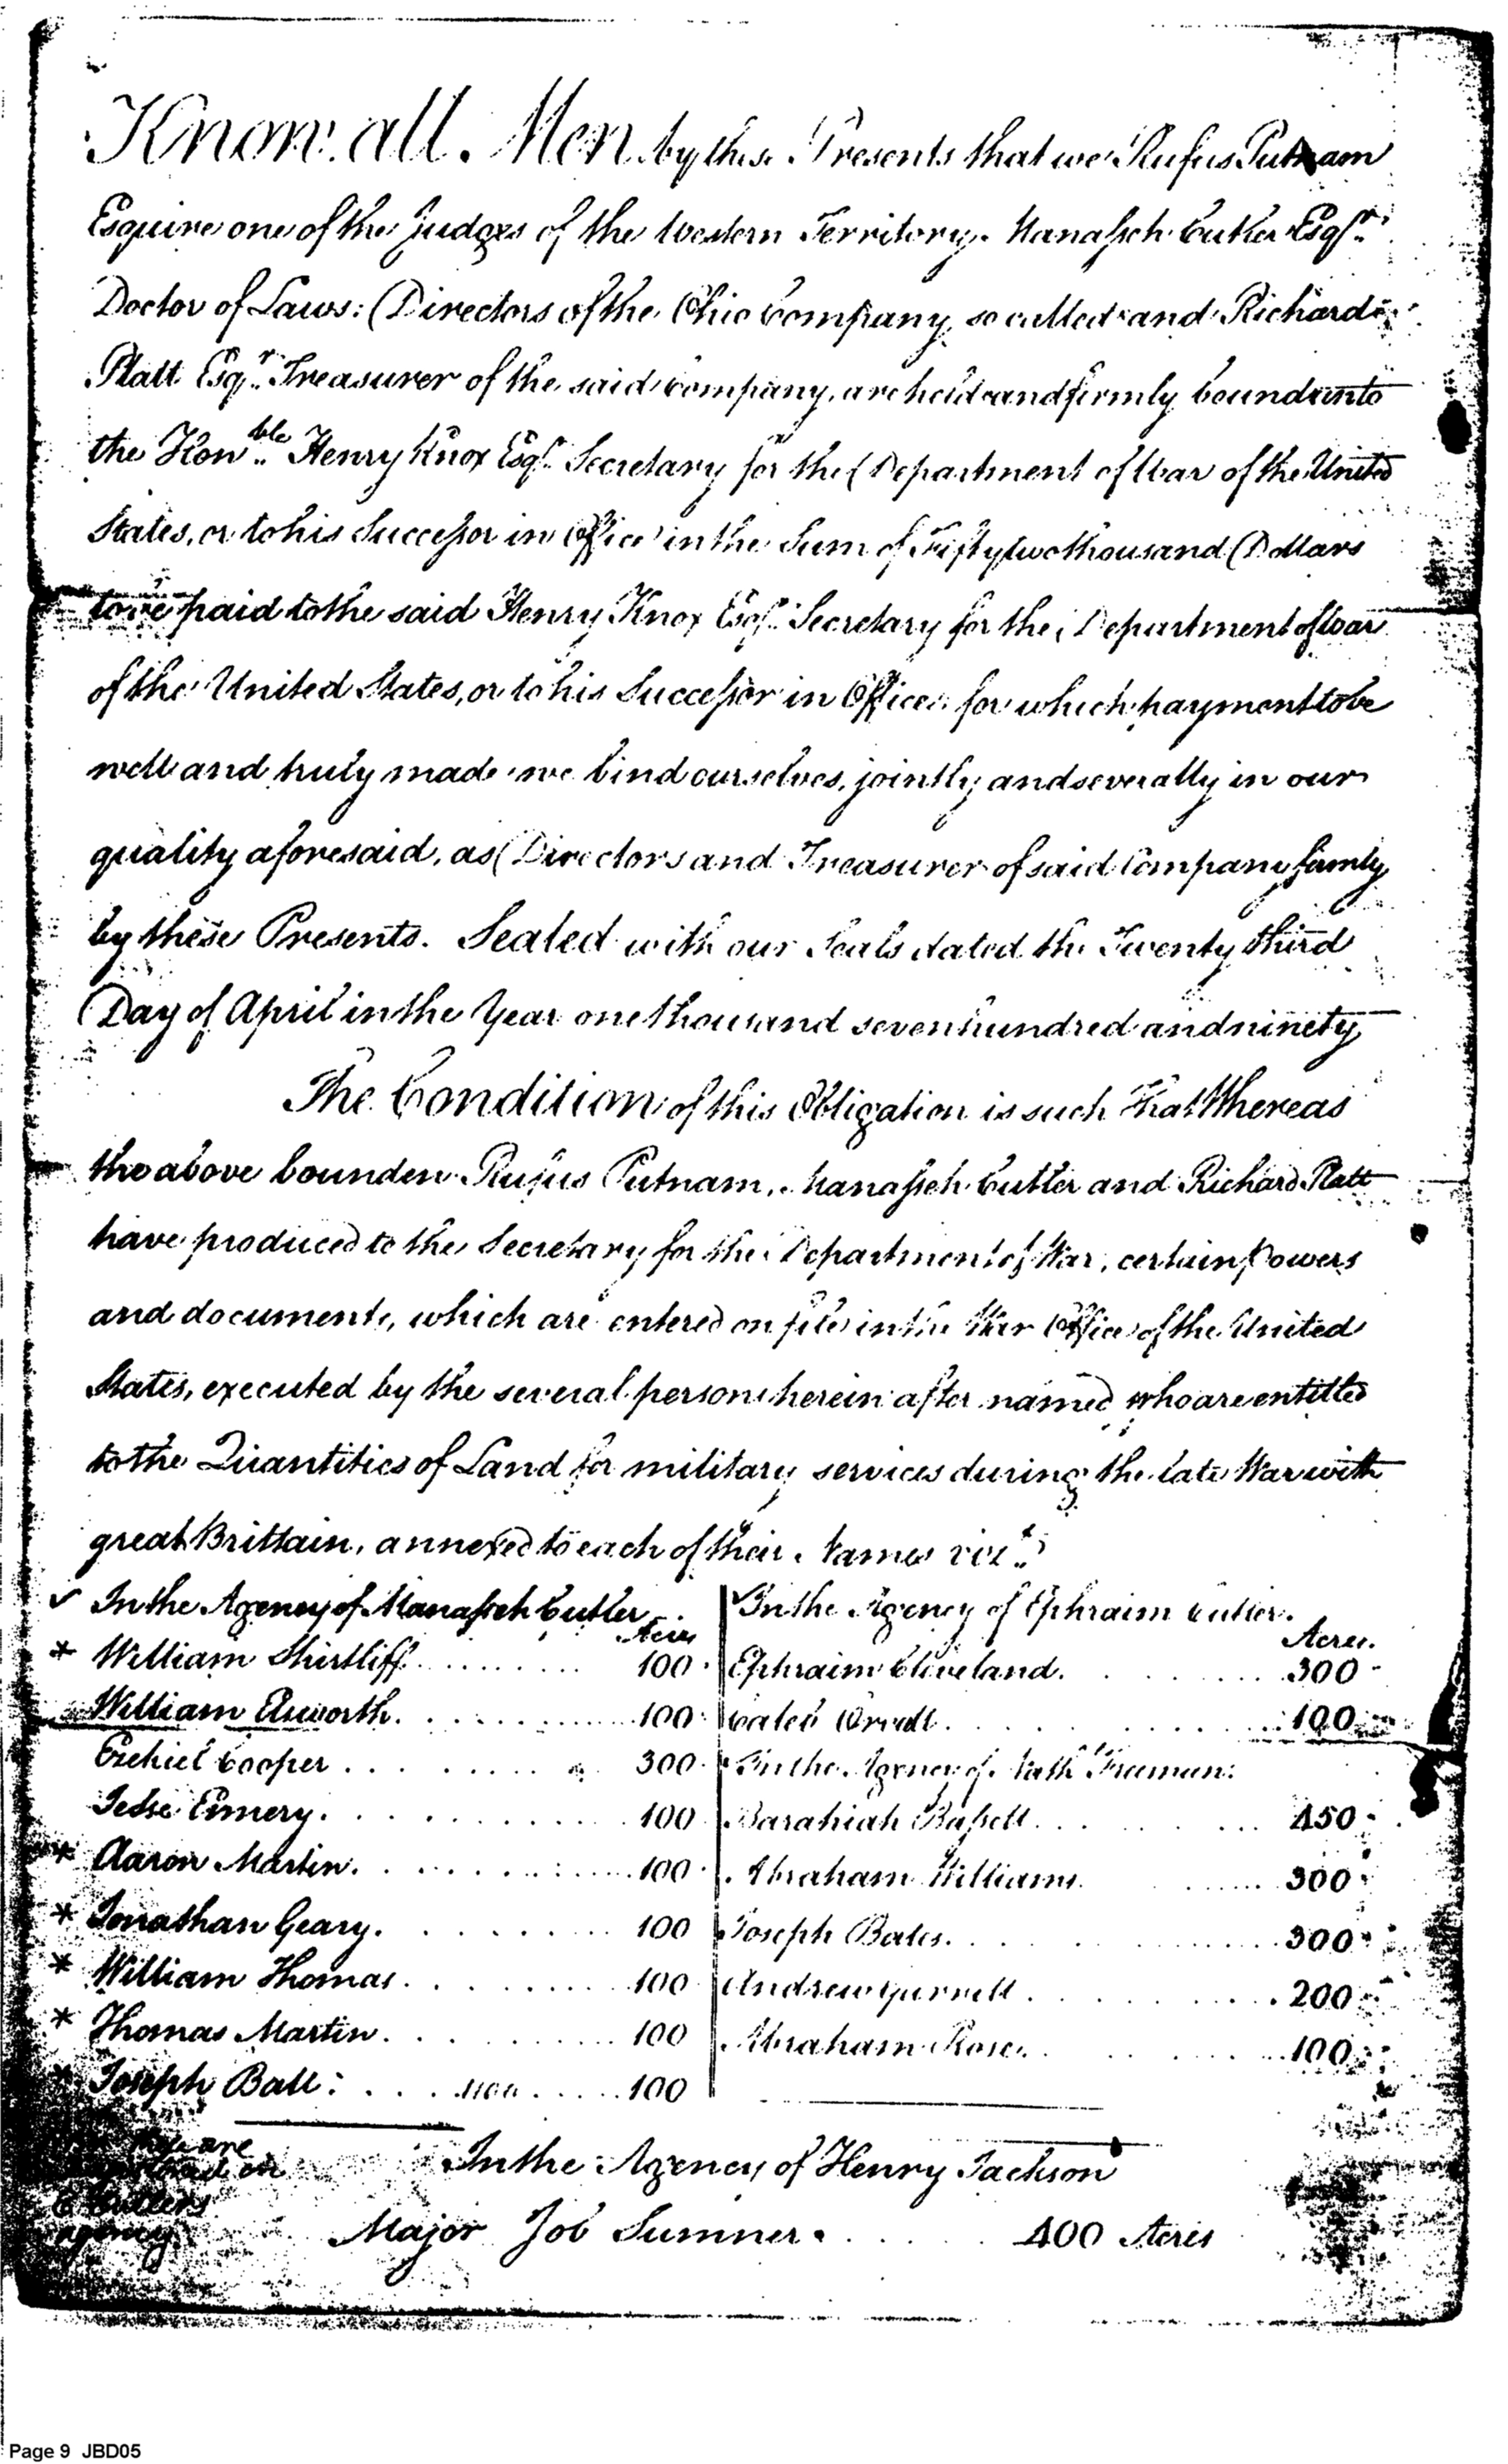 Know all Men by these Presents that we Rufus Putnam
Esquire one of the Judges of the Western Territory. Manasseh Cutler Esqr.
Doctor of Laws: Directors of the Ohio Company so called and Richard
Platt Esqr. Treasurer of the said Company, are held and firmly bound unto
the Honble. Henry Knox Esqr. Secretary for the Department of War of the United
States, or to his Successor in Office in the Sum of Fifty two thousand Dollars
to be paid to the said Henry Knox Esqr. Secretary for the Department of War
of the United States, or to his Successor in Office: for which payment to be
well and truly made we bind ourselves, jointly and severally in our
quality aforesaid, as Directors and Treasurer of said Company firmly
by these Presents. Sealed with our Seals dated the Twenty third
Day of April in the Year one thousand seven hundred and ninety
The Condition of this Obligation is such That Whereas
the above bounden Rufus Putnam, Manasseh Cutler and Richard Platt
have produced to the Secretary for the Department of War, certain Powers
and documents, which are entered on file in the War Office of the United
States, executed by the several persons herein after named who are entitled
to the Quantities of Land for military services during the late War with
great Brittain, annexed to each of their Names vizt.
✓ In the Agency of Manasseh Cutler
Acres
* William Shirtliff . . . . 100
William Elsworth . . . . 100
Ezekiel Cooper . . . . 300
Jesse Emmery . . . . 100
** Aaron Martin . . . . 100
* Jonathan Geary . . . . 100
* William Thomas . . . . 100
* Thomas Martin . . . . 100
* Joseph Ball : . . . . 100
✓ In the Agency of Ephraim Cutler.
Acres.
Ephraim Cleveland . . . . 300
Caleb Orvett . . . . 100
In the Agency of Nath Freeman:
Barahiah Bassett . . . . 450
Abraham Williams . . . . 300
Joseph Bates . . . . 300
Andrew Gurrell . . . . 200
Abraham Rose . . . . 100
are
on
E Cutlers
agency
In the Agency of Henry Jackson
Major Job Sumner . . . . 400 Acres
Page 9 JBD05